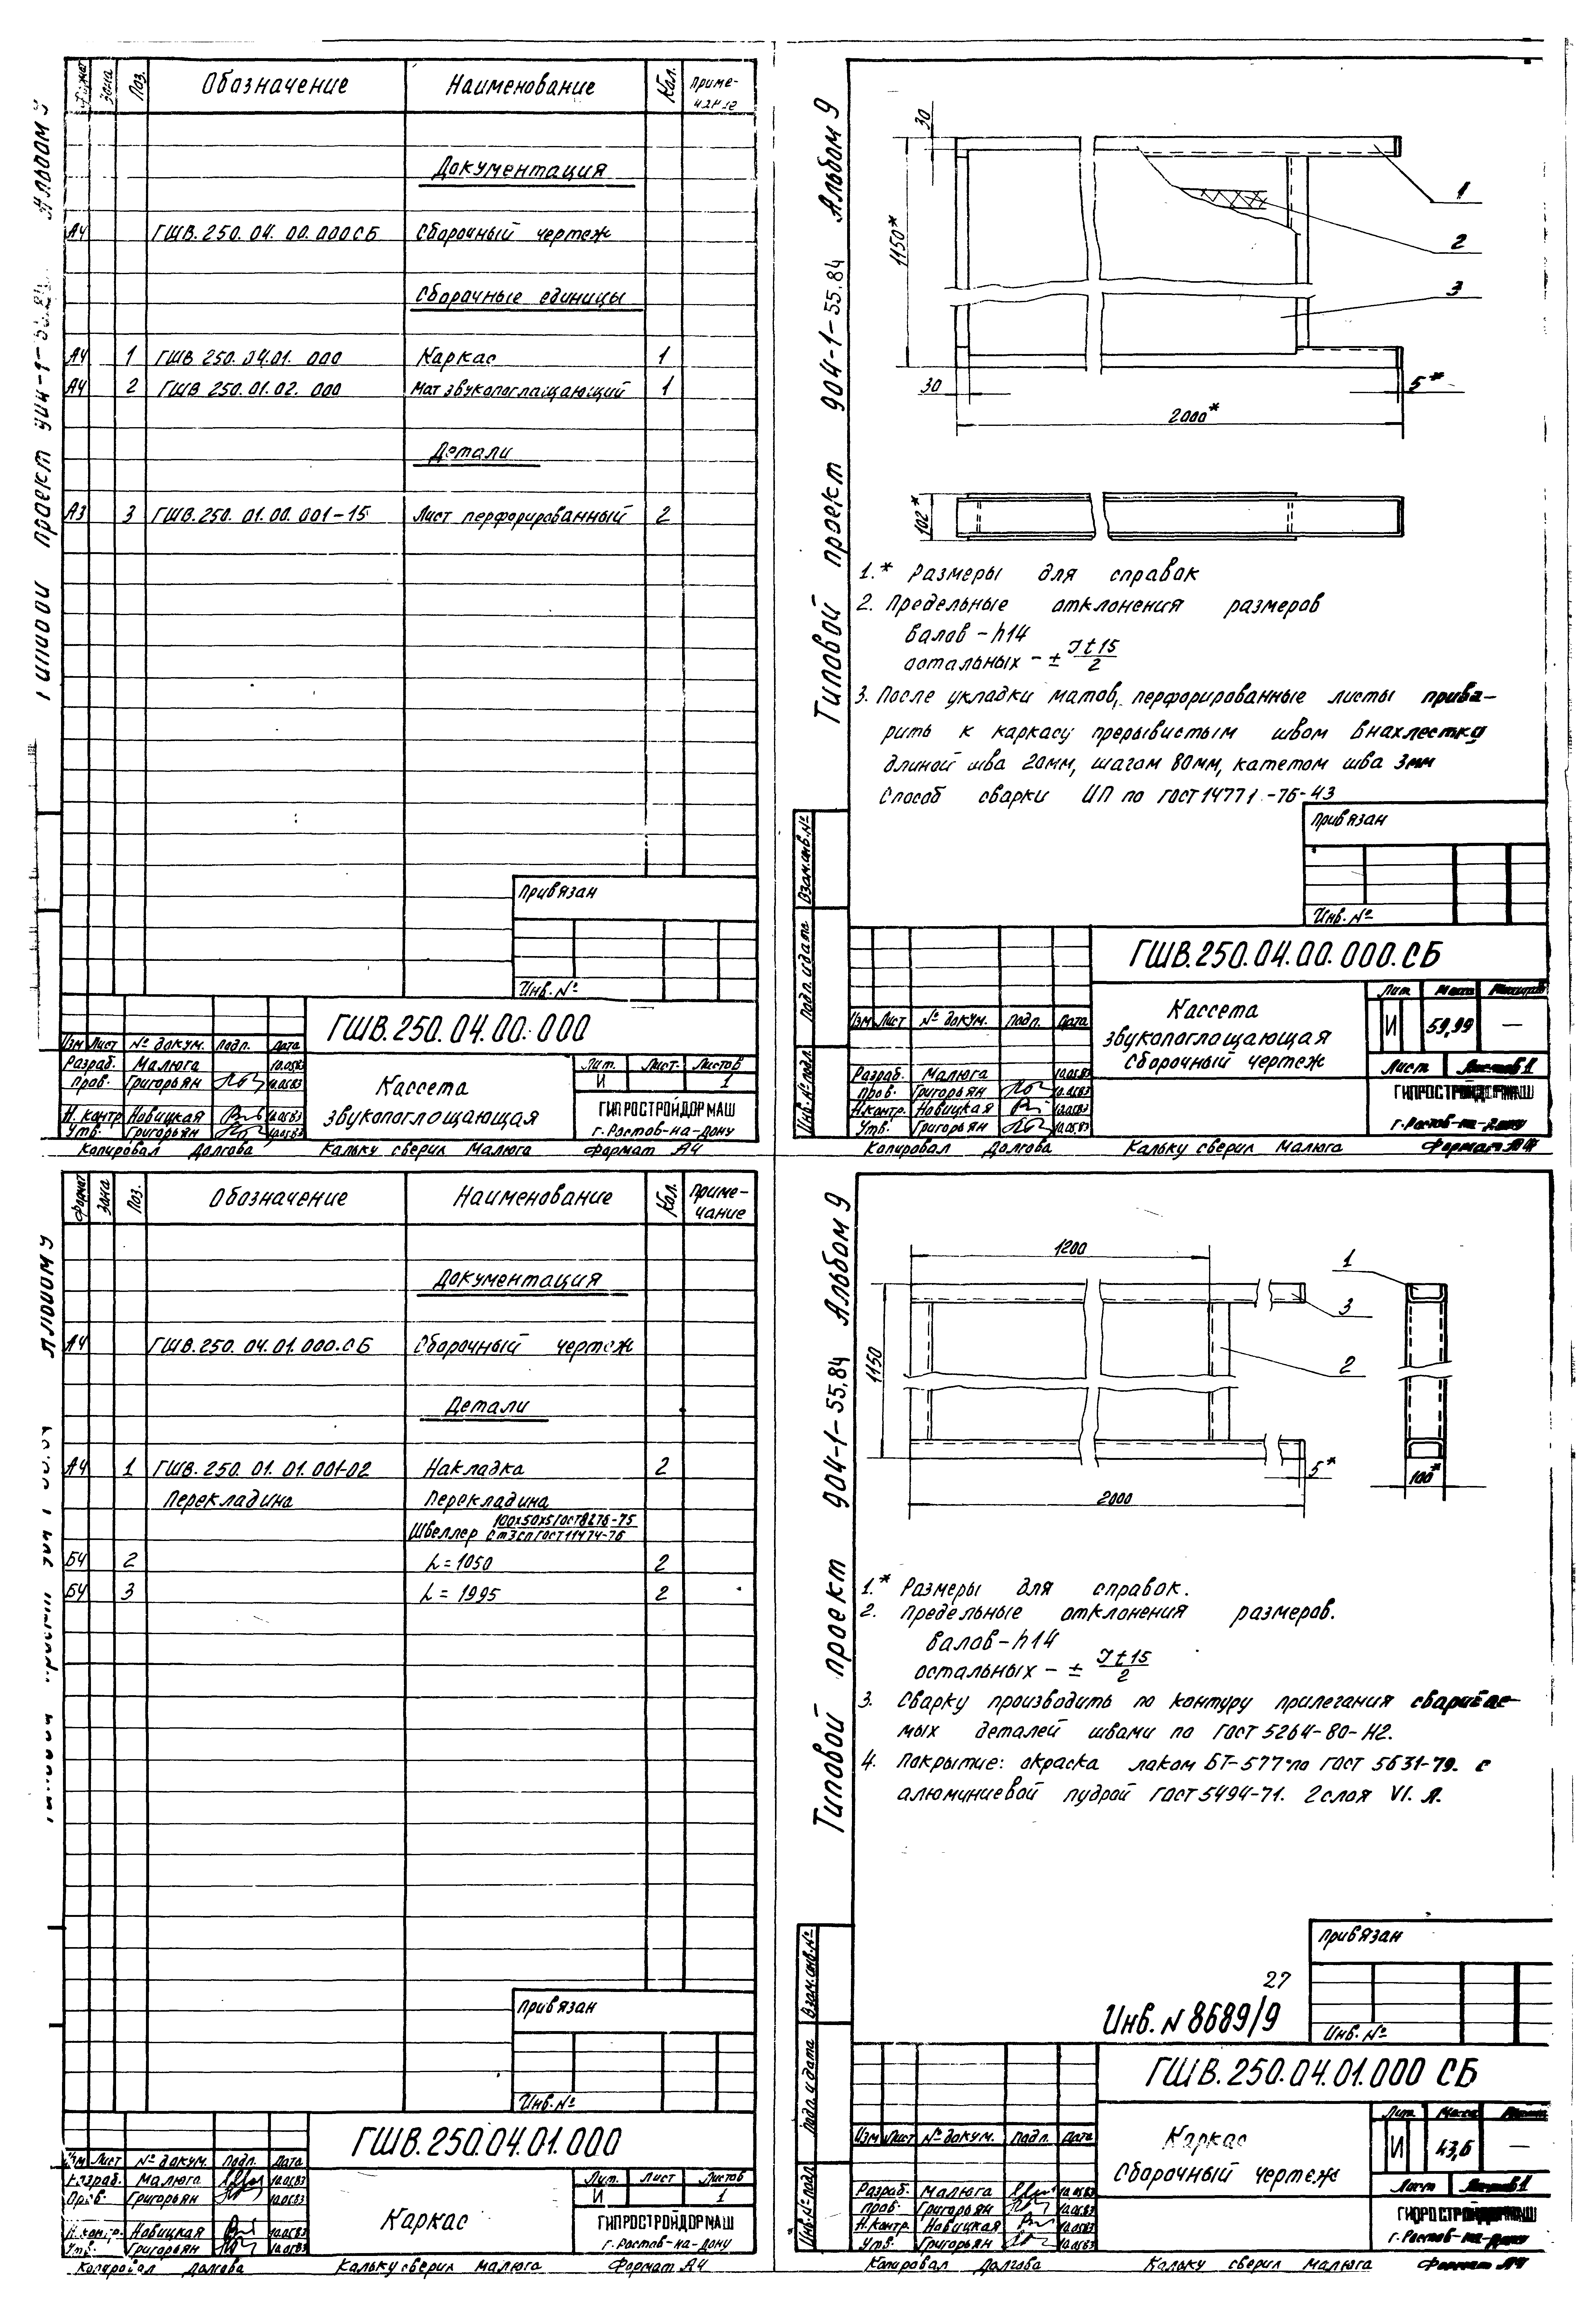 Формат Зона Поз. Обозначение Наименование Кол. Приме-
чание
Документация
А4 ГШВ.250.04.00.000СБ Сборочный чертеж
Сборочные единицы
А4 1 ГШВ 250.04.01.000 Каркас 1
А4 2 ГШВ 250.01.02.000 Мат звукопоглащающий 1
Детали
А3 3 ГШВ.250.01.00.001-15 Лист перфорированный 2
Привязан
Инв. №
ГШВ.250.04.00.000
Изм Лист № докум. Подп. Дата
Разраб. Малюга 10.05.83
Пров. Григорьян 10.05.83
Н.контр. Новицкая 10.05.83
Утв. Григорьян 10.05.83
Кассета
звукопоглощающая
Лит. Лист. Листов
И 1
ГИПРОСТРОЙДОРМАШ
г.Ростов-на-Дону
Копировал Долгова Кальку сверил Малюга Формат А4
Типовой проект 904-1-55.84 Альбом 9
30
1150*
1
2
3
30
5*
2000*
102*
1.* Размеры для справок
2. Предельные отклонения размеров
валов - h14
остальных - ± It15/2
3. После укладки матов, перфорированные листы прива-
рить к каркасу прерывистым швом внахлестку
длиной шва 20мм, шагом 80мм, катетом шва 3мм
Способ сварки ИП по ГОСТ 14771-76-Н3
Привязан
Инв. №
Взам.инв.№
Подп. и дата
Инв.№ подл.
ГШВ.250.04.00.000.СБ
Изм Лист № докум. Подп. Дата
Разраб. Малюга
Пров. Григорьян 10.05.83
Н.контр. Новицкая 10.05.83
Утв. Григорьян 10.05.83
Кассета
звукопоглощающая
Сборочный чертеж
Лит Масса Масштаб
И 59,99 —
Лист Листов 1
ГИПРОСТРОЙДОРМАШ
г.Ростов-на-Дону
Копировал Долгова Кальку сверил Малюга Формат А4
Формат Зона Поз. Обозначение Наименование Кол. Приме-
чание
Документация
А4 ГШВ.250.04.01.000.СБ Сборочный чертеж
Детали
А4 1 ГШВ.250.01.01.001-02 Накладка 2
Перекладина Перекладина
Швеллер 100х50х5 ГОСТ 8278-75
Ст3сп ГОСТ 11474-76
БЧ 2 L=1050 2
БЧ 3 L=1995 2
Привязан
Инв. №
ГШВ.250.04.01.000
Изм Лист № докум. Подп. Дата
Разраб. Малюга 10.05.83
Пров. Григорьян 10.05.83
Н.контр. Новицкая 10.05.83
Утв. Григорьян 10.05.83
Каркас
Лит. Лист Листов
И 1
ГИПРОСТРОЙДОРМАШ
г.Ростов-на-Дону
Копировал Долгова Кальку сверил Малюга Формат А4
Типовой проект 904-1-55.84 Альбом 9
1200
1
3
2
1150
5*
2000
100*
1.* Размеры для справок.
2. Предельные отклонения размеров.
валов - h14
остальных - ± It15/2
3. Сварку производить по контуру прилегания сваривае-
мых деталей швами по ГОСТ 5264-80-Н2.
4. Покрытие: окраска лаком БТ-577 по ГОСТ 5631-79. с
алюминиевой пудрой ГОСТ 5494-71. 2 слоя VI. Л.
27
Инв. N 8689/9
Привязан
Инв. №
Взам.инв.№
Подп. и дата
Инв.№ подл.
ГШВ.250.04.01.000 СБ
Изм Лист № докум. Подп. Дата
Разраб. Малюга 10.05.83
Пров. Григорьян 10.05.83
Н.контр. Новицкая 10.05.83
Утв. Григорьян 10.05.83
Каркас
Сборочный чертеж
Лит. Масса
И 43,6 —
Лист Листов 1
ГИПРОСТРОЙДОРМАШ
г.Ростов-на-Дону
Копировал Долгова Кальку сверил Малюга Формат А4